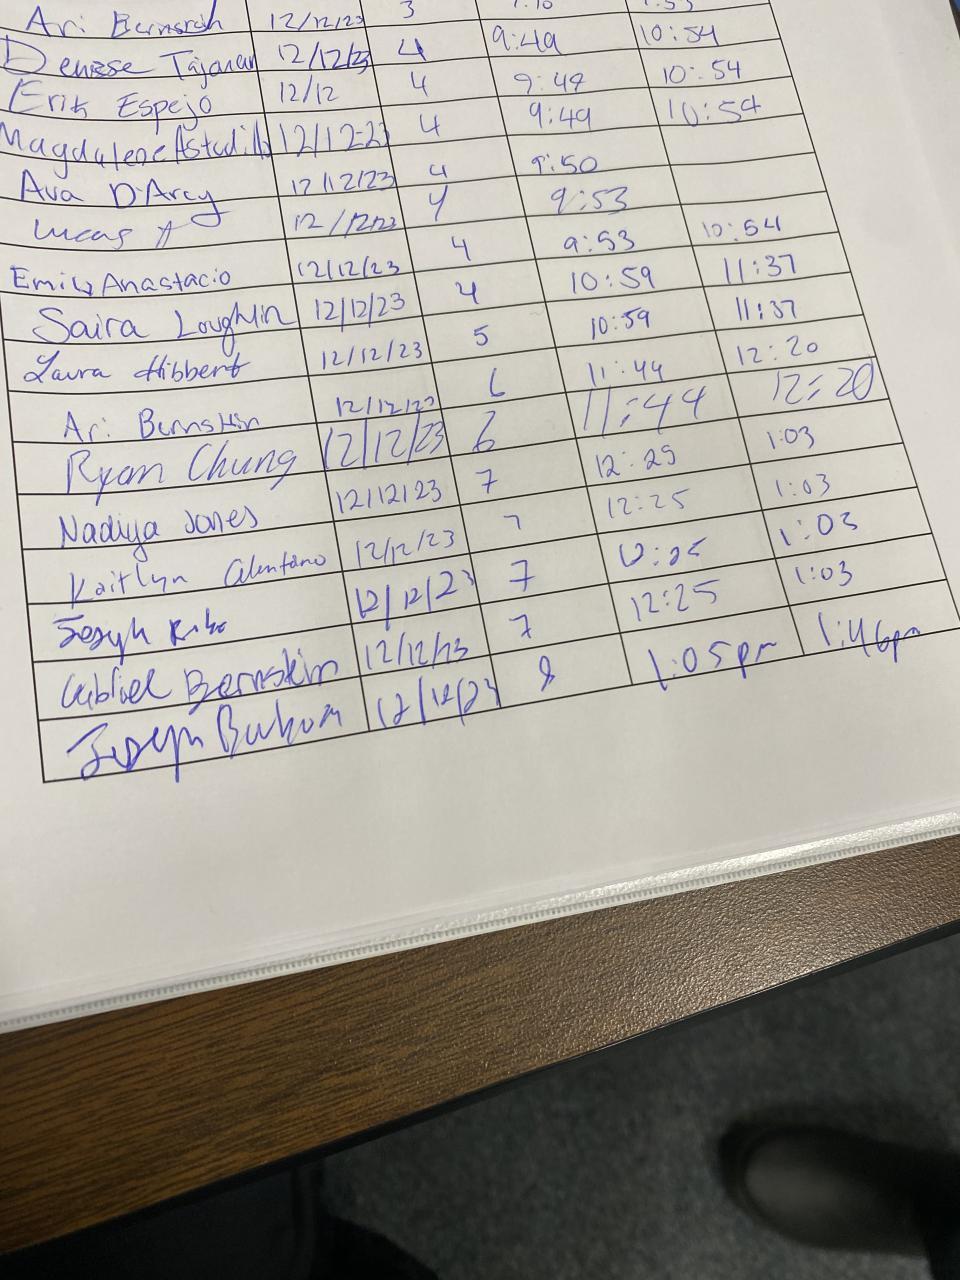 Ari Bernstein 12/12/23 3
Denisse 12/12/23 4 9:49 10:54
Erik Espejo 12/12 4 9:49 10:54
Magdalene Astudillo 12/12-23 4 9:49 10:54
Ava D'Arcy 12/12/23 4 9:50
Lucas A 12/12/23 4 9:53
Emily Anastacio 12/12/23 4 9:53 10:54
Saira Loughlin 12/12/23 4 10:59 11:37
Laura Hibbert 12/12/23 5 10:59 11:37
Ari Bernstein 12/12/23 6 11:44 12:20
Ryan Chung 12/12/23 6 11:44 12:20
Nadiya Jones 12/12/23 7 12:25 1:03
Kaitlyn 12/12/23 7 12:25 1:03
Joseph 12/12/23 7 12:25 1:03
Gabriel Bernstein 12/12/23 7 12:25 1:03
Joseph 12/12/23 8 1:05pm 1:46pm